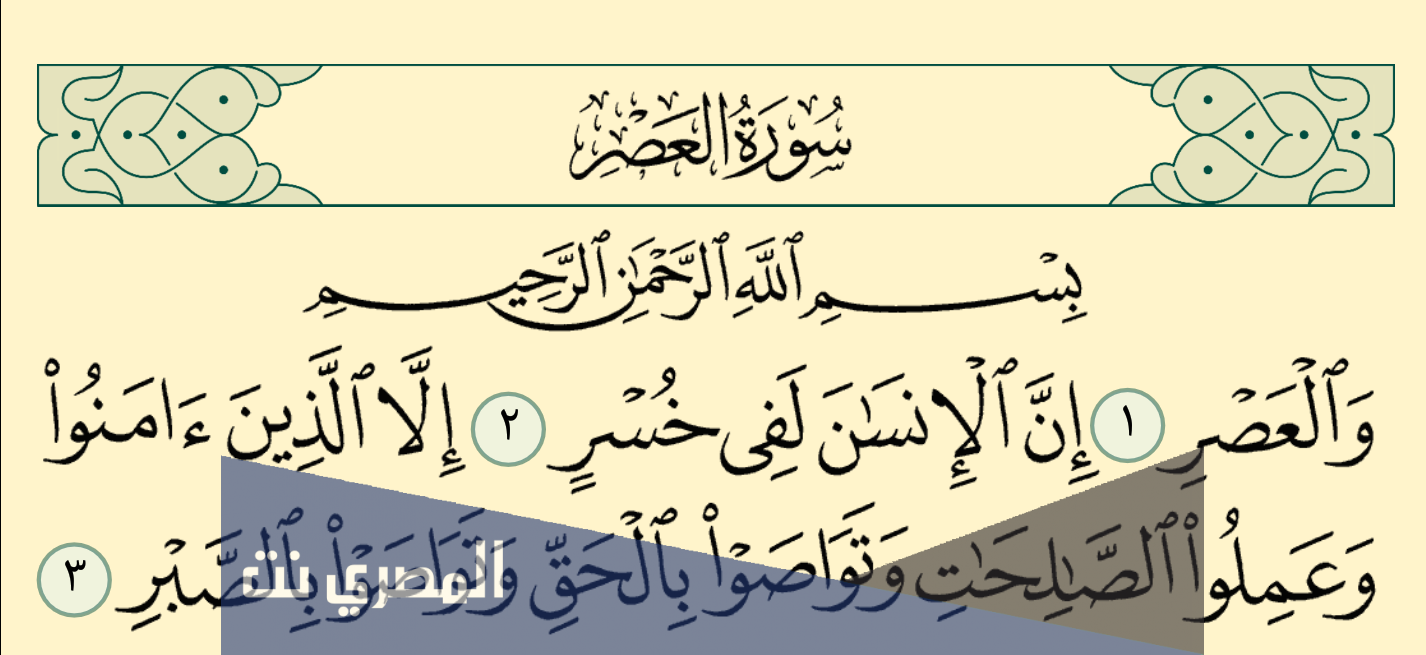 سُورَةُ العَصْرِ
بِسْمِ ٱللَّهِ ٱلرَّحْمَٰنِ ٱلرَّحِيمِ
وَٱلْعَصْرِ ١ إِنَّ ٱلْإِنسَٰنَ لَفِى خُسْرٍ ٢ إِلَّا ٱلَّذِينَ ءَامَنُوا۟
وَعَمِلُوا۟ ٱلصَّٰلِحَٰتِ وَتَوَاصَوْا۟ بِٱلْحَقِّ وَتَوَاصَوْا۟ بِٱلصَّبْرِ ٣
المصري نت